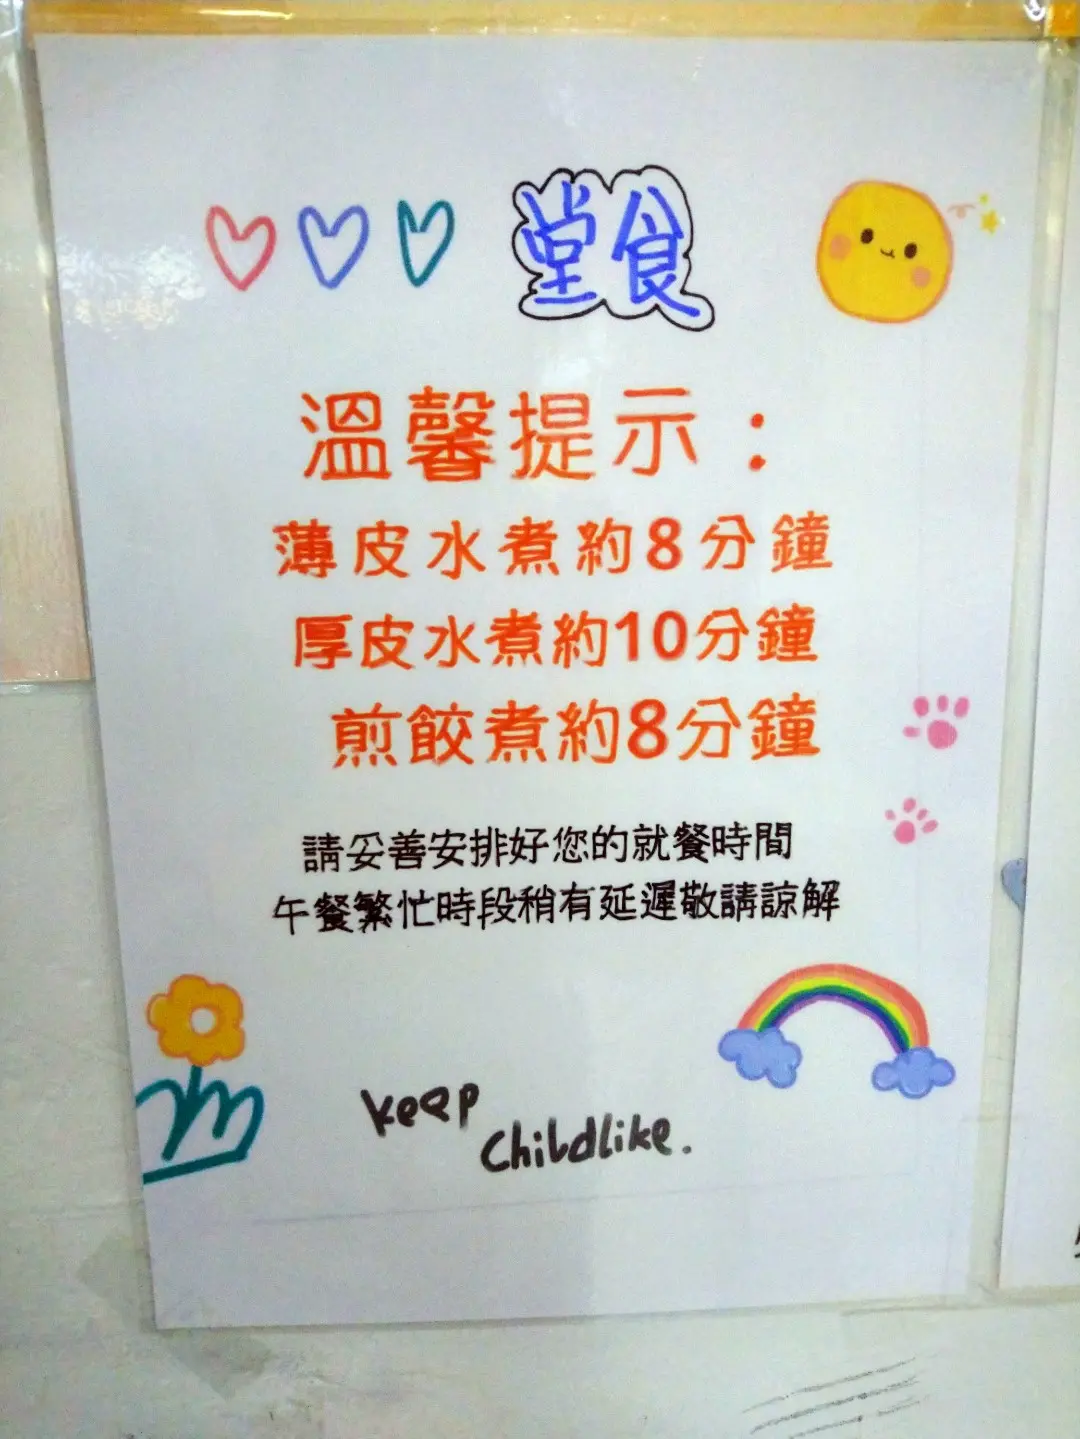 堂食
溫馨提示：
薄皮水煮約8分鐘
厚皮水煮約10分鐘
煎餃煮約8分鐘
請妥善安排好您的就餐時間
午餐繁忙時段稍有延遲敬請諒解
keep
childlike.